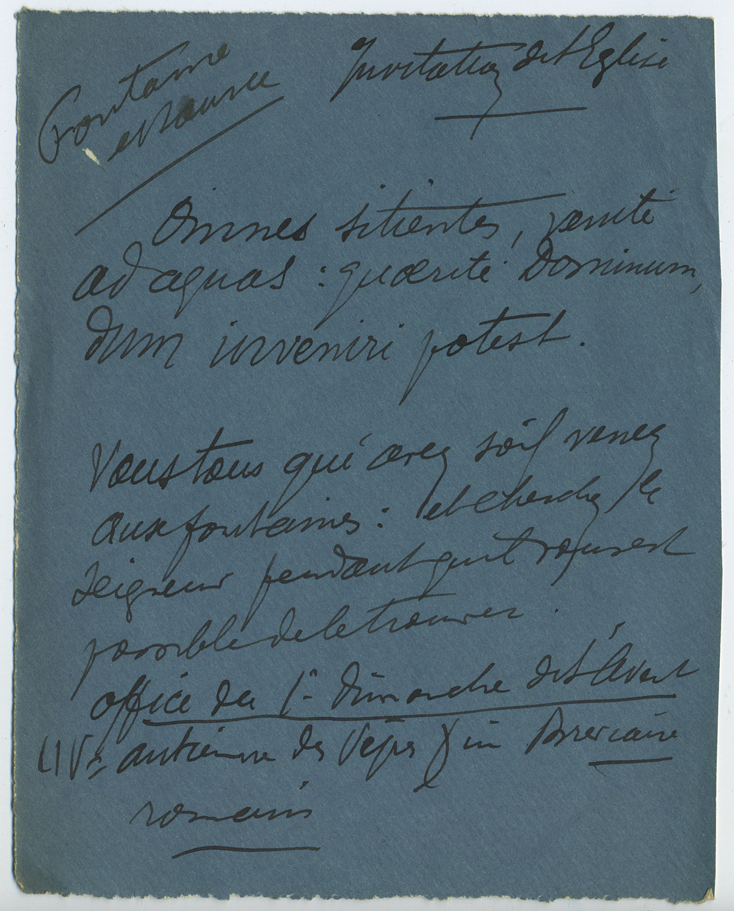 Fontaine
et source
Invitation de l'Eglise
Omnes sitientes, venite
ad aquas : quærite Dominum,
dum inveniri potest.
Vous tous qui avez soif venez
aux fontaines : et cherchez le
Seigneur pendant qu'il vous est
possible de le trouver.
office du 1er dimanche de l'Avent
(IVe antienne des Vêpres) in Breviaire
romain